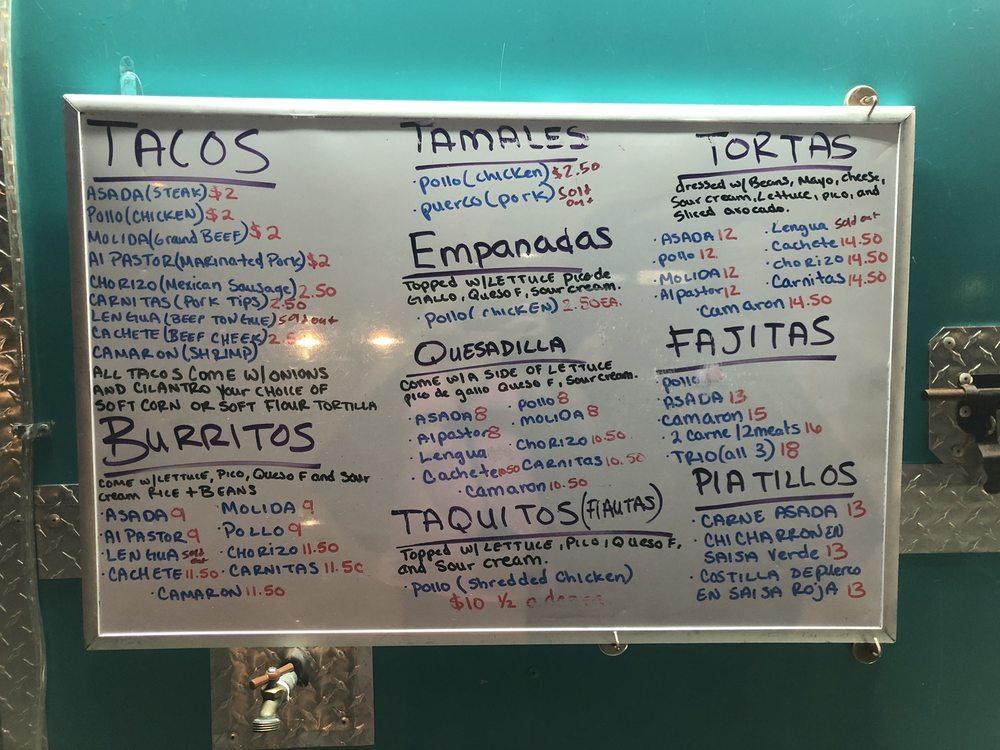 TACOS
ASADA (STEAK) $2
POLLO (CHICKEN) $2
MOLIDA (Ground BEEF) $2
Al PASTOR (MARINATED Pork) $2
CHORIZO (Mexican Sausage) 2.50
CARNITAS (PORK TIPS) 2.50
LENGUA (BEEF TONGUE) sold out
CACHETE (BEEF CHEEK) 2.5
CAMARON (SHRIMP)
ALL TACOS COME W/ONIONS
AND CILANTRO your CHOICE OF
SOFT CORN OR SOFT FLOUR TORTILLA
BURRITOS
COME W/LETTUCE, PICO, QUESO F and Sour
cream RICE + BEANS
· ASADA 9
· MOLIDA 9
· Al PASTOR 9
· POLLO 9
· LENGUA Sold out
· CHORIZO 11.50
· CACHETE 11.50
· CARNITAS 11.50
· CAMARON 11.50
TAMALES
· pollo (chicken) $2.50
· puerco (pork) Sold out
Empanadas
Topped W/LETTUCE pico de
GALLO, Queso F, Sour cream.
· Pollo (chicken) 2.50 EA.
QUESADILLA
COME W/A SIDE OF LETTUCE
pico de gallo Queso F, Sour cream.
· ASADA 8
· pollo 8
· Al pastor 8
· MOLIDA 8
· Lengua
· Chorizo 10.50
· Cachete 10.50
· CARNITAS 10.50
· Camaron 10.50
TAQUITOS (FLAUTAS)
Topped W/ LETTUCE, PICO, QUESO F,
and Sour cream.
· POLLO (shredded Chicken)
$10 1/2 a dozen
TORTAS
dressed w/ Beans, Mayo, cheese,
Sour cream, Lettuce, pico, and
Sliced avocado.
· ASADA 12
· Lengua Sold out
· pollo 12
· Cachete 14.50
· MOLIDA 12
· choRIZO 14.50
· Al pastor 12
· Carnitas 14.50
· Camaron 14.50
FAJITAS
· pollo
· ASADA 13
· Camaron 15
· 2 carne / 2 meats 16
· TRIO (all 3) 18
PLATILLOS
· CARNE ASADA 13
· CHICHARRON EN
SALSA Verde 13
· COSTILLA DE puerco
EN SALSA ROJA 13